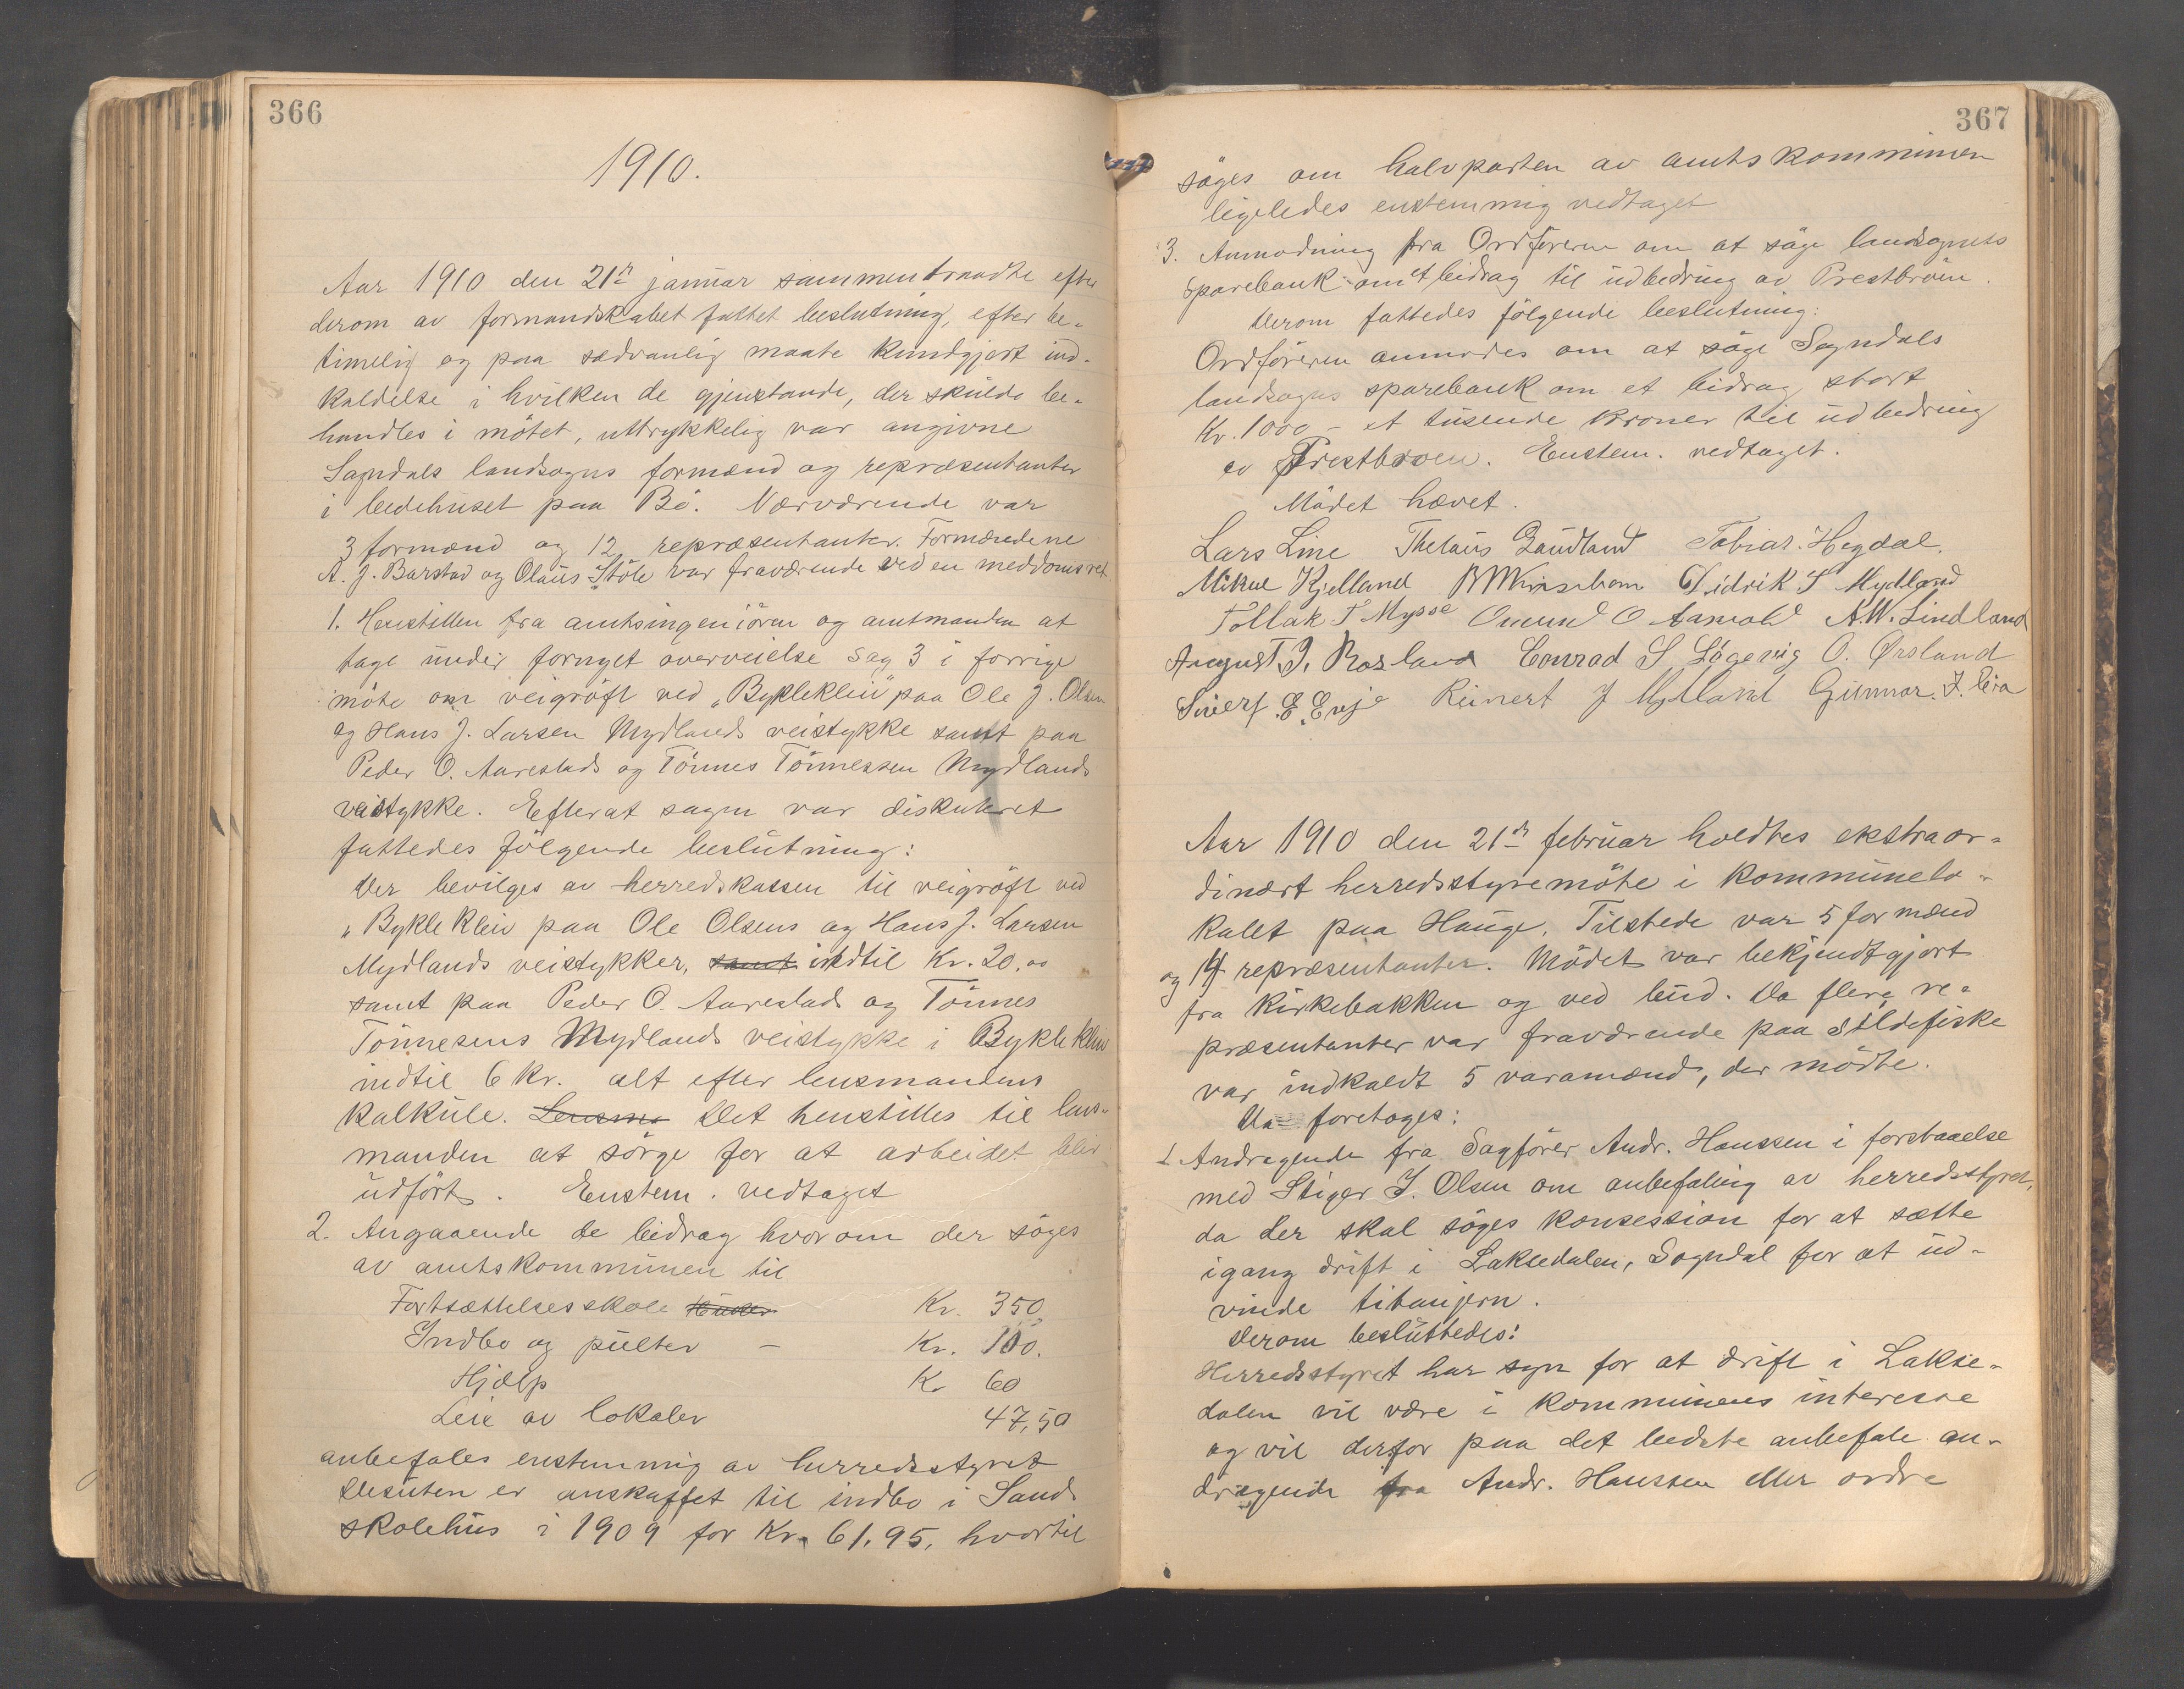 366
1910.
Aar 1910 den 21de januar sammentraadte efter
derom av formandskabet fattet beslutning, efter be-
timelig og paa sædvanlig maate kundgjort ind-
kaldelse i hvilken de gjenstande, der skulde be-
handles i mötet, uttrykkelig var angivne
Sogndals landsogns formænd og repræsentanter
i bedehuset paa Bö. Nærværende var
3 formænd og 12 repræsentanter. Formændene
A. J. Barstad og Olaus Stöle var fraværende ved en meddomsret.
1. Henstillen fra amtsingeniören og amtmanden at
tage under fornyet overveielse sag 3 i forrige
möte om veigröft ved "Bykleklein" paa Ole J. Olsen
og Hans J. Larsen Mydlands veistykke samt paa
Peder O. Aarestads og Tönnes Tönnessen Mydlands
veistykke. Efterat sagen var diskuteret
fattedes fölgende beslutning:
Der bevilges av herredskassen til veigröft ved
"Bykleklein paa Ole Olsens og Hans J. Larsen
Mydlands veistykker, samt indtil Kr. 20.00
samt paa Peder O. Aarestads og Tönnes
Tönnesens Mydlands veistykke i Bykleklein
indtil 6 Kr. alt efter lensmandens
kalkule. Lensma Det henstilles til lens-
manden at sörge for at arbeidet blir
udfört. Enstem. vedtaget
2. Angaaende de bidrag hvorom der söges
av amtskommunen til
Fortsættelsesskole Kr. 350
Indbo og pulter - Kr. 100.
Hjælp Kr 60
Leie av lokaler 47,50
anbefales enstemmig av herredsstyret
Desuten er anskaffet til indbo i Sand
skolehus i 1909 for Kr. 61.95, hvortil
367
söges om halvparten av amtskommunen
ligeledes enstemmig vedtaget
3. Anmodning fra Ordföreren om at söge landsognets
Sparebank om et bidrag til udbedring av Prestbroen.
Derom fattedes fölgende beslutning:
Ordföreren anmodes om at söge Sogndals
landsogns sparebank om et bidrag stort
Kr. 1000 - et tusende kroner til udbedring
av Prestbroen. Enstem. vedtaget.
Mödet hævet.
Lars Line Thelaus Gaudland Tobias Hegdal.
Mikal Kjelland Didrik S Mydland
Tollak T Mysse Omund O Aamodt A.W. Lindland
August J. Rosland Conrad S Lögevig O. Ørsland
Sivert E. Evje Reinert J Mydland Gunnar J. Eia
Aar 1910 den 21de februar holdtes ekstraor-
dinært herredsstyremöte i kommunelo-
kalet paa Hauge. Tilstede var 5 formænd
og 14 repræsentanter. Mödet var bekjendtgjort
fra kirkebakken og ved bud. Da flere re-
præsentanter var fraværende paa sildefiske
var indkaldt 5 varamænd, der mödte.
Da foretoges:
1. Andragende fra Sagförer Andr. Hanssen i forstaaelse
med Stiger J. Olsen om anbefaling av herredsstyret,
da der skal söges konsession for at sætte
igang drift i Laksedalen, Sogndal for at ud-
vinde titanjern.
Derom besluttedes:
Herredsstyret har syn for at drift i Lakse-
dalen vil være i kommunens interesse
og vil derfor paa det bedste anbefale an-
dragende fra Andr. Hanssen eller ordre